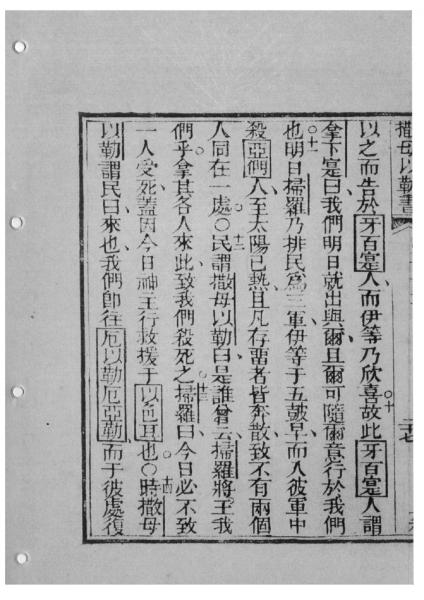 撒母以勒書
以之而告於牙百寔人而伊等乃欣喜十故此牙百寔人謂
拿下寔曰我們明日就出與爾且爾可隨爾意行於我們
也十一明日掃羅乃排民爲三軍伊等于五皷早而入彼軍中
殺亞們人至太陽已熱且凡存畱者皆奔散致不有兩個
人同在一處○十二民謂撒母以勒曰是誰曾云掃羅將王我
們乎拿其各人來此致我們殺死之十三掃羅曰今日必不致
一人受死蓋因今日神王行救援于以色耳也○十四時撒母
以勒謂民曰來也我們卽往厄以勒厄亞勒而于彼處復